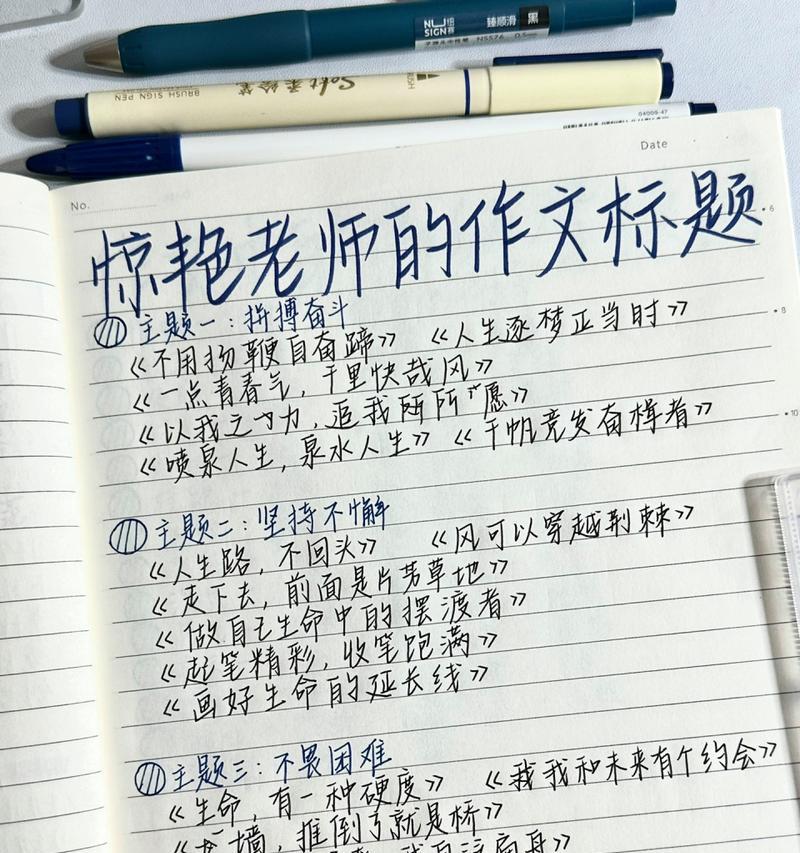 NU SIGN 绘赛 臻顺滑 黑
N5576 0.5mm
Soft柔绘笔
BRUSH SIGN PEN
04009-47
No.
Date
惊艳老师的作文标题
6
主题一:拼搏奋斗
《不用扬鞭自奋蹄》 《人生逐梦正当时》
8
《一点青春气,千里快哉风》
《以我之力,追我所所愿》
《喷泉人生,泉水人生》 《千帆竞发奋楫者》
10
主题二:坚持不懈
《人生路,不回头》 《风可以穿越荆棘》
《走下去,前面是片芳草地》
《做自己生命中的摆渡者》
《起笔精彩,收笔饱满》
《画好生命的延长线》
主题三:不畏困难
《生命,有一种硬度》 《我我和未来有个约会》
墙,推倒了就是桥》